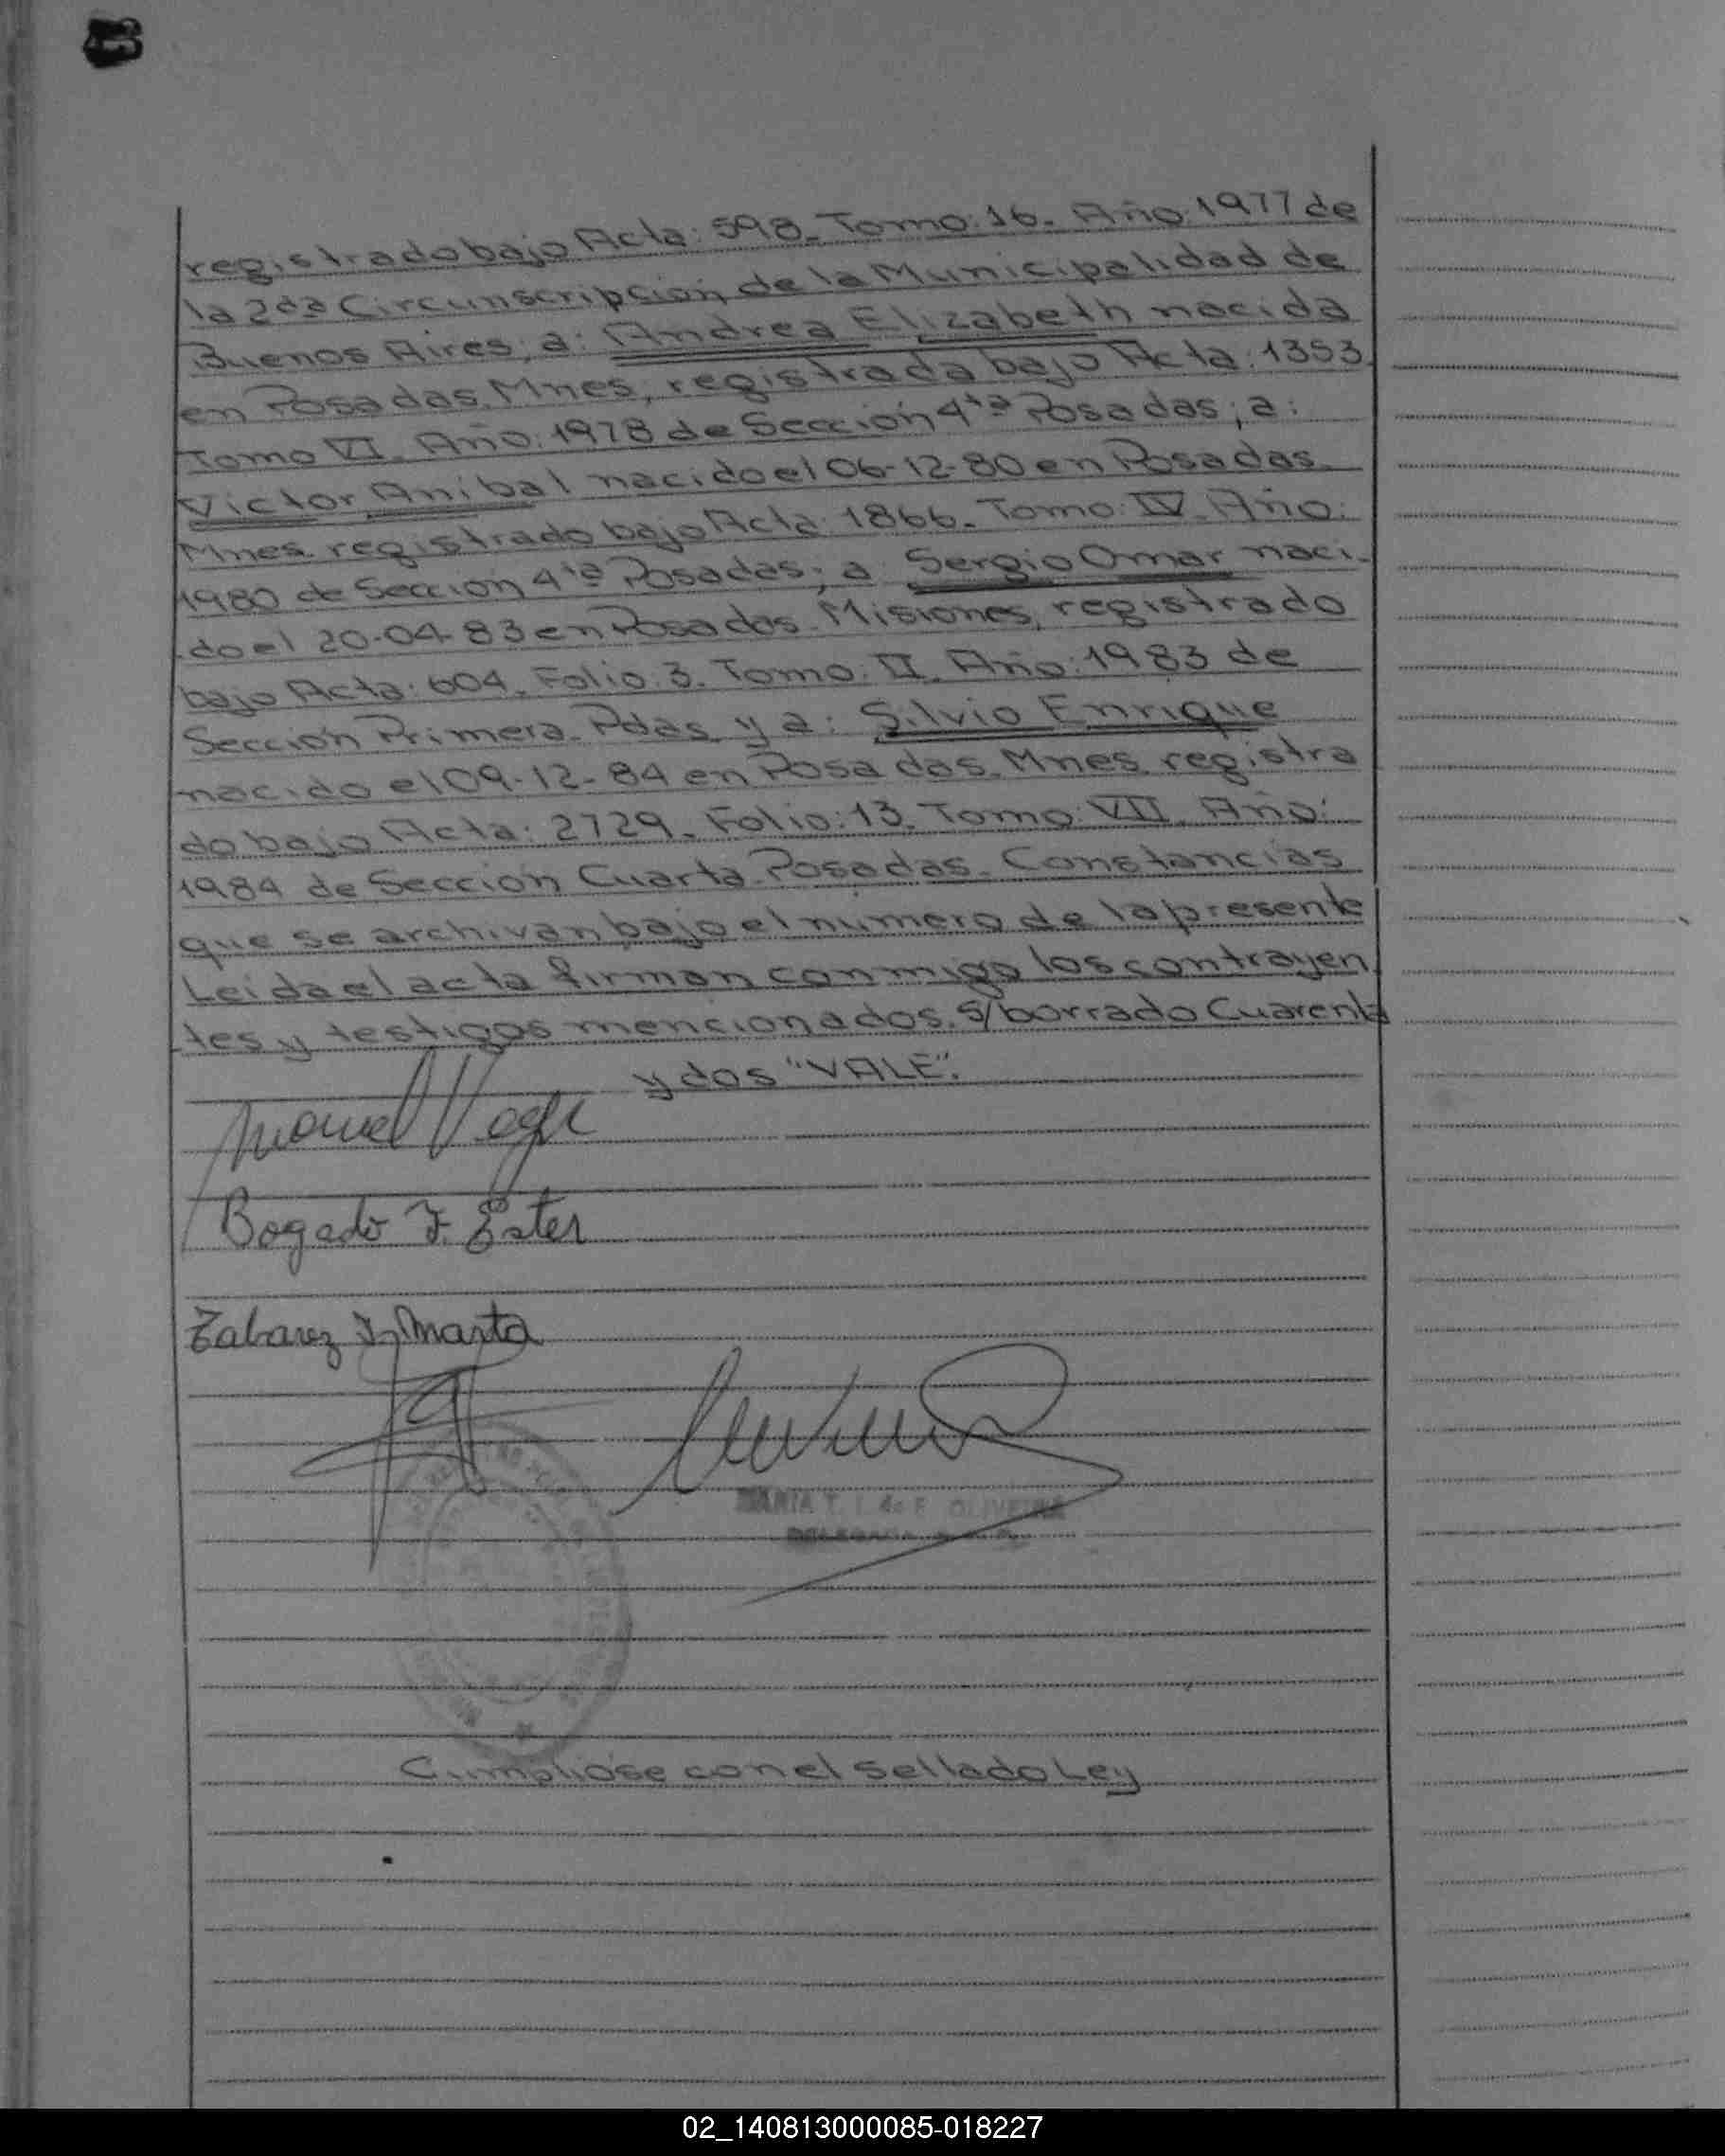 43
registrado bajo Acta: 598. Tomo: 16. Año: 1977 de
la 2da Circunscripción de la Municipalidad de
Buenos Aires; a: Andrea Elizabeth nacida
en Posadas, Mnes, registrada bajo Acta: 1353.
Tomo VI. Año: 1978 de Sección 4ta Posadas; a:
Victor Anibal nacido el 06-12-80 en Posadas.
Mnes registrado bajo Acta: 1866. Tomo: IV. Año:
1980 de Sección 4ta Posadas; a Sergio Omar naci-
do el 20-04-83 en Posadas. Misiones, registrado
bajo Acta: 604. Folio: 3. Tomo: II. Año: 1983 de
Sección Primera. Pdas y a: Silvio Enrique
nacido el 09-12-84 en Posadas. Mnes registra
do bajo Acta: 2729. Folio: 13. Tomo: VII. Año:
1984 de Sección Cuarta. Posadas. Constancias
que se archivan bajo el número de la presente
Leida el acta firman conmigo los contrayen
tes y testigos mencionados. S/borrado Cuarenta
y dos "VALE".
Bogado F. Ester
Tabarez Marta
MARIA T. I. de F. OLIVEIRA
Cumplióse con el sellado Ley
02_140813000085-018227